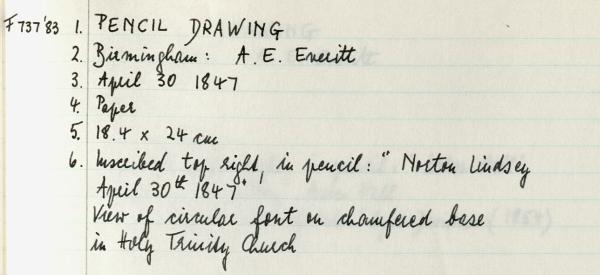 F737'83 1. PENCIL DRAWING
2. Birmingham: A. E. Everitt
3. April 30 1847
4. Paper
5. 18.4 x 24 cm
6. Inscribed top right, in pencil: "Norton Lindsey
April 30th 1847"
View of circular font on chamfered base
in Holy Trinity Church